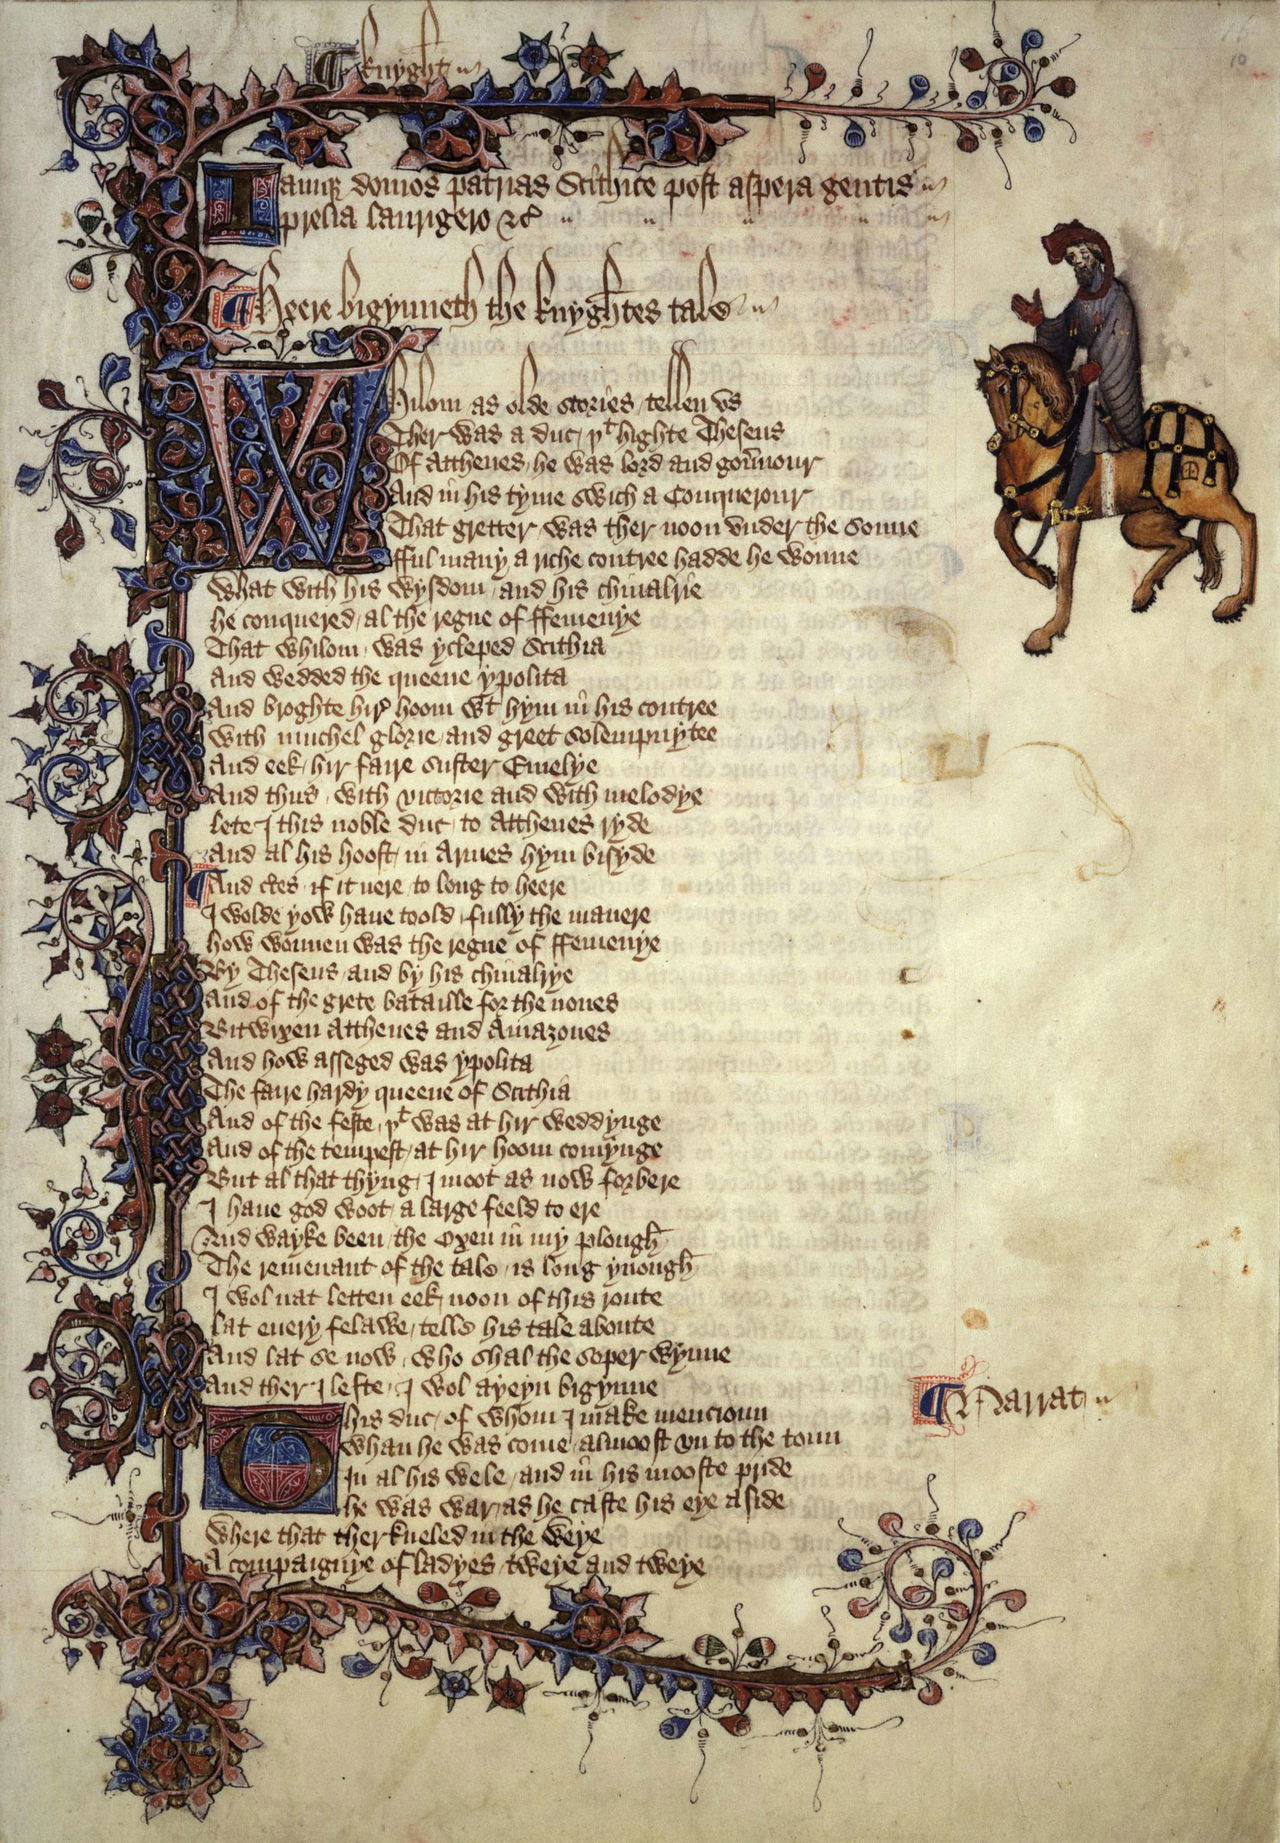 10
¶ knyght
Iamq; domos patrias Scithice post aspera gentis
prelia laurigero &c̃
¶ Heere bigynneth the knyghtes tale
Whilom as olde stories / tellen vs
Ther was a duc / þͭ highte Theseus
Of Atthenes / he was lord and goũnour
And in his tyme swich a Conquerour
That gretter was ther noon vnder the sonne
fful many a riche contree hadde he wonne
What with his wysdom / and his chiualrie
he conquered / al the regne of ffemenye
That whilom / was ycleped Scithia
And wedded the queene ypolita
And broghte hir̛ hoom wͭ hym in his contree
With muchel glorie / and greet solempnytee
And eek / hir faire suster Emelye
And thus / with victorie and with melodye
lete I this noble duc / to Atthenes ryde
And al his hoost / in Armes hym bisyde
¶ And c̃tes / if it nere / to long to heere
I wolde yow haue toold / fully the manere
how wonnen was the regne of ffemenye
By Theseus / and by his chiualrye
And of the grete bataille for the nones
Bitwixen Atthenes and Amazones
And how asseged was ypolita
The faire hardy queene of Scithia
And of the feste / þͭ was at hir weddynge
And of the tempest / at hir hoom comynge
But al that thyng / I moot as now forbere
I haue god woot / a large feeld to ere
And wayke been / the Oxen in my plough
The remenant of the tale / is long ynough
I wol nat letten eek / noon of this route
lat euery felawe / telle his tale aboute
And lat se now / who shal the soper wynne
And ther I lefte / I wol ayeyn bigynne
¶ Narrat
This duc / of whom I make mencioun
Whan he was come / almoost vn to the toun
In al his wele / and in his mooste pride
he was war / as he caste his eye aside
Where that ther kneled in the weye
A compaignye of ladyes / tweye and tweye